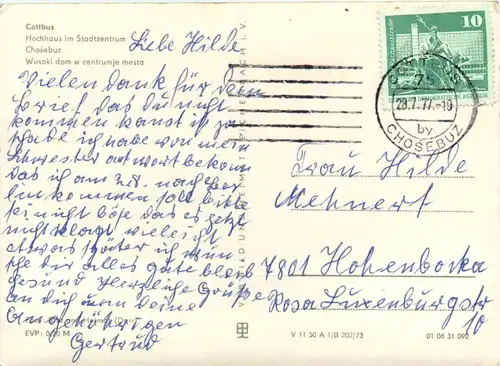 Cottbus
Hochhaus im Stadtzentrum
Chośebuz
Wusoki dom w centrumje mesta
Liebe Hilde
Vielen Dank für dein
brief das du nicht
kommen kanst ist
schade ich habe von mein
schwester antwort bekomm
das ich am nach Ber
lin kommen soll bitte
sei nicht böse das es jetzt
nicht klapt vieleicht
etwas später ich wün
sche dir alles gute bleib
gesund Herzliche Grüße
an dich von deine
Angehörigen
Gertrud
EVP: 0,20 M
10
COTTBUS
75
28.7.77.-18
by
CHOŚEBUZ
Frau Hilde
Mehnert
7801 Hohenbocka
Rosa Luxenburgstr
10
V 11 50 A 1/B 202/73
01 06 31 092